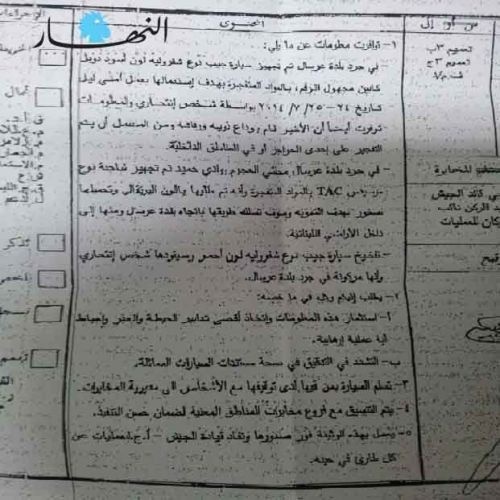 النهار
من أو إلى
المحتوى
تعميم ٣ب
تعميم ٣ج
١- توافرت معلومات عن ما يلي:
في جرد بلدة عرسال تم تجهيز سيارة جيب نوع شفروليه لون أسود دوبل
كابين مجهول الرقم، بالمواد المتفجرة بهدف إستعمالها بعمل أمني ليل
تاريخ ٢٤-٢٥/٧/٢٠١٤ بواسطة شخص إنتحاري، والمعلومات
توفرت أيضاً أن الأخير قام بوداع ذويه ورفاقه ومن المحتمل أن يتم
التفجير على إحدى الحواجز أو في المناطق الداخلية.
- في جرد بلدة عرسال، محلتي الهجوم ووادي حميد تم تجهيز شاحنة نوع
TAC بالمواد المتفجرة وأنه تم طلاؤها باللون البرتقالي وتحميلها
صخور بهدف التمويه وسوف تسلك طريقها باتجاه بلدة عرسال ومنها إلى
داخل الأراضي اللبنانية.
- تفخيخ سيارة جيب نوع شفروليه لون أحمر وسيقودها شخص إنتحاري
وأنها مركونة في جرد بلدة عرسال.
٢- يطلب إليكم وكل في ما خصه:
أ- استثمار هذه المعلومات واتخاذ أقصى تدابير الحيطة والحذر وإحباط
أية عملية إرهابية.
ب- التشدد في التدقيق في صحة مستندات السيارات المماثلة.
٣- تسلم السيارة بمن فيها لدى توقيفها مع الأشخاص الى مديرية المخابرات.
٤- يتم التنسيق مع فروع مخابرات المناطق المعنية لضمان حسن التنفيذ.
٥- يعمل بهذه الوثيقة فور صدورها وتفاد قيادة الجيش - أ.ج.للعمليات عن
كل طارئ في حينه.
للمخابرة
قائد الجيش
للعمليات